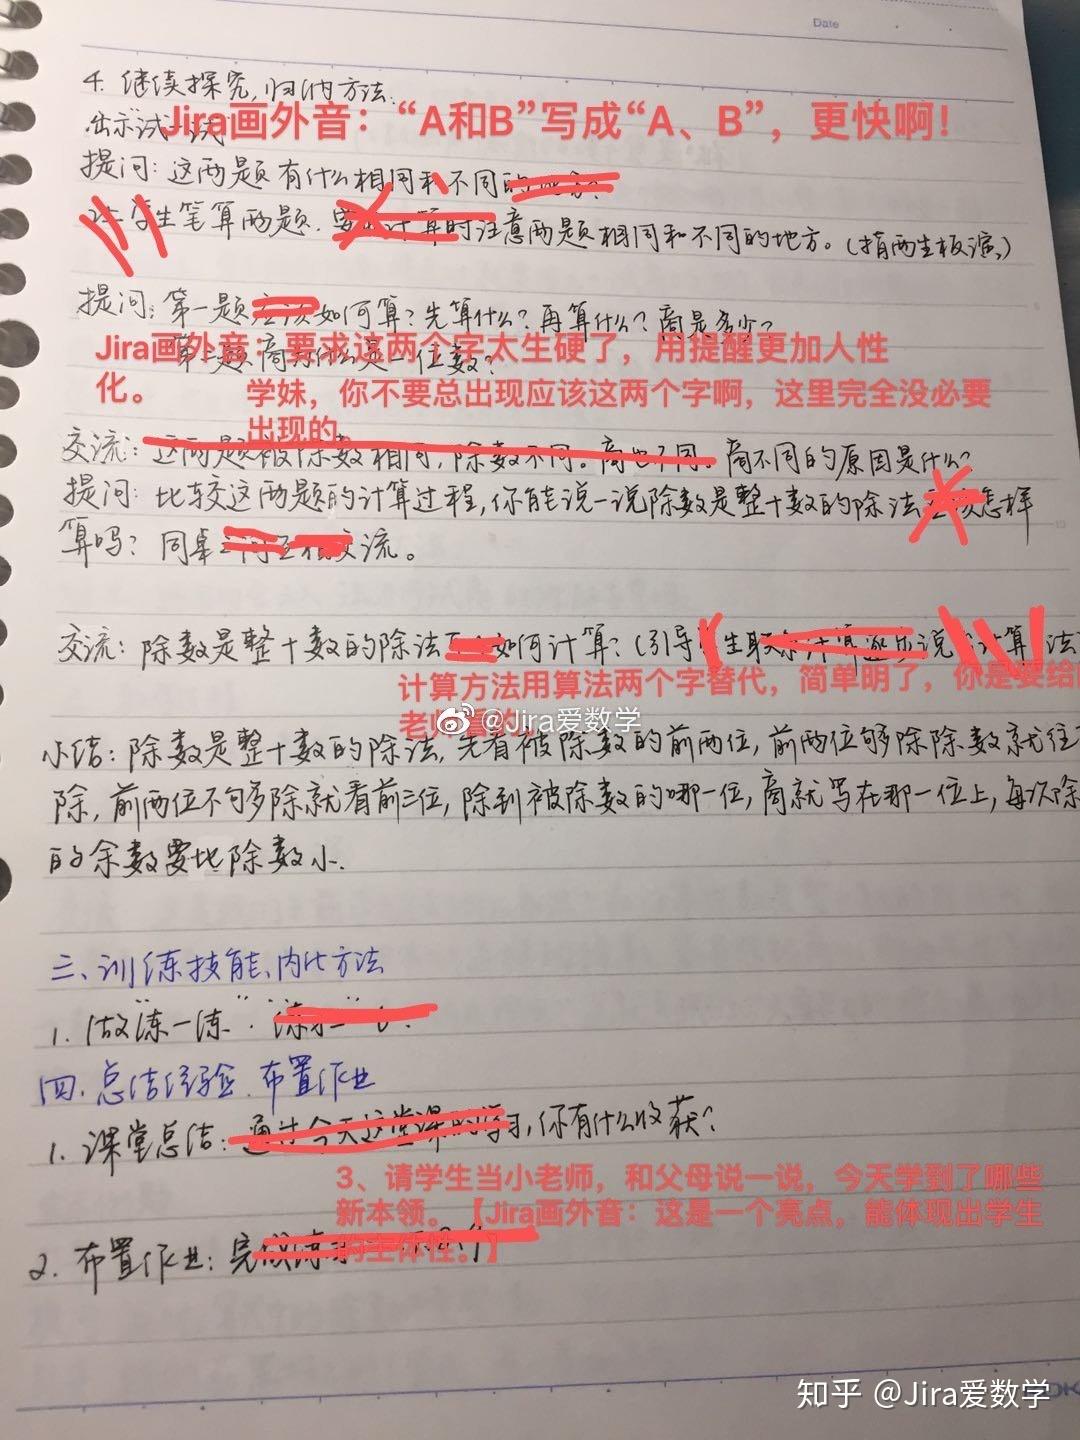 Date
4. 继续探究,归纳方法.
出示"试一试"
Jira画外音:“A和B”写成“A、B”,更快啊!
提问:这两题有什么相同和不同的
学生笔算两题. 计算时注意两题相同和不同的地方。(指两生板演.)
提问:第一题应该如何算?先算什么?再算什么?商是多少?
第二题商为什么是一位数?
Jira画外音:要求这两个字太生硬了,用提醒更加人性
化。
学妹,你不要总出现应该这两个字啊,这里完全没必要
出现的
交流:这两题被除数相同,除数不同。商也不同。商不同的原因是什么?
提问:比较这两题的计算过程,你能说一说除数是整十数的除法应该怎样
算吗?同桌之间互相交流。
交流:除数是整十数的除法如何计算?(引导学生联系计算逐步说计算法
计算方法用算法两个字替代,简单明了,你是要给
老师看的
@Jira爱数学
小结:除数是整十数的除法,先看被除数的前两位,前两位够除除数就往
除,前两位不够除就看前三位,除到被除数的哪一位,商就写在那一位上,每次除
的余数要比除数小.
三、训练技能、内化方法
1. 做"练一练".
四. 总结经验.布置作业
1. 课堂总结:通过今天这堂课的学习,你有什么收获?
3、请学生当小老师,和父母说一说,今天学到了哪些
新本领。【Jira画外音:这是一个亮点,能体现出学生
的主体性。】
2. 布置作业:完成练习
知乎 @Jira爱数学